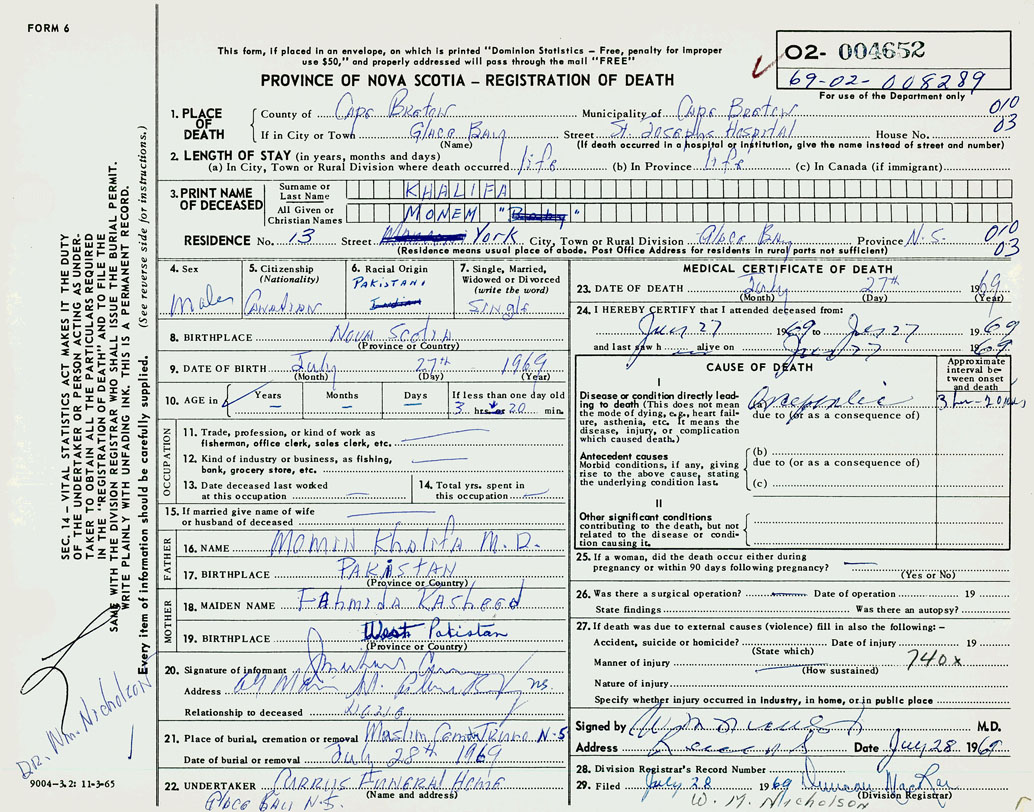 FORM 6
This form, if placed in an envelope, on which is printed "Dominion Statistics – Free, penalty for improper
use $50," and properly addressed will pass through the mail "FREE"
PROVINCE OF NOVA SCOTIA – REGISTRATION OF DEATH
O2- 004652
69-02-008289
For use of the Department only
1. PLACE OF DEATH
County of Cape Breton Municipality of Cape Breton 010
If in City or Town Glace Bay Street St. Josephs Hospital House No. 03
(Name) (If death occurred in a hospital or institution, give the name instead of street and number)
2. LENGTH OF STAY (in years, months and days)
(a) In City, Town or Rural Division where death occurred life (b) In Province life (c) In Canada (if immigrant)
3. PRINT NAME OF DECEASED
Surname or Last Name KHALIFA
All Given or Christian Names MONEM " "
RESIDENCE No. 13 Street York City, Town or Rural Division Glace Bay Province N.S. 010
(Residence means usual place of abode. Post Office Address for residents in rural parts not sufficient) 03
4. Sex Male
5. Citizenship (Nationality) Canadian
6. Racial Origin Pakistani Indian
7. Single, Married, Widowed or Divorced (write the word) Single
8. BIRTHPLACE Nova Scotia
(Province or Country)
9. DATE OF BIRTH July 27th 1969
(Month) (Day) (Year)
10. AGE in Years Months Days If less than one day old
3 hrs 20 min.
OCCUPATION
11. Trade, profession, or kind of work as
fisherman, office clerk, sales clerk, etc.
12. Kind of industry or business, as fishing,
bank, grocery store, etc.
13. Date deceased last worked
at this occupation
14. Total yrs. spent in
this occupation
15. If married give name of wife
or husband of deceased
FATHER
16. NAME Momin Khalifa M.D.
17. BIRTHPLACE PAKISTAN
(Province or Country)
MOTHER
18. MAIDEN NAME Fahmida Rasheed
19. BIRTHPLACE West Pakistan
(Province or Country)
20. Signature of informant
Address
Relationship to deceased
21. Place of burial, cremation or removal Muslim Cem Truro N.S
Date of burial or removal July 28th 1969
22. UNDERTAKER Currys Funeral Home
(Name and address)
Glace Bay N.S.
MEDICAL CERTIFICATE OF DEATH
23. DATE OF DEATH July 27th 1969
(Month) (Day) (Year)
24. I HEREBY CERTIFY that I attended deceased from:
27 1969 to 27 1969
and last saw h alive on 27 1969
CAUSE OF DEATH
Approximate interval between onset and death
I
Disease or condition directly leading to death (This does not mean the mode of dying, e.g., heart failure, asthenia, etc. It means the disease, injury, or complication which caused death.)
(a) Anencephalic
due to (or as a consequence of)
Antecedent causes
Morbid conditions, if any, giving rise to the above cause, stating the underlying condition last.
(b)
due to (or as a consequence of)
(c)
II
Other significant conditions
contributing to the death, but not related to the disease or condition causing it.
25. If a woman, did the death occur either during
pregnancy or within 90 days following pregnancy?
(Yes or No)
26. Was there a surgical operation? Date of operation 19
State findings Was there an autopsy?
27. If death was due to external causes (violence) fill in also the following: –
Accident, suicide or homicide? Date of injury 19
(State which)
Manner of injury 740x
(How sustained)
Nature of injury
Specify whether injury occurred in industry, in home, or in public place
Signed by M.D.
Address Date July 28 1969
28. Division Registrar's Record Number
29. Filed July 28 1969 Duncan MacRae
(Division Registrar)
W. M. Nicholson
SEC. 14 – VITAL STATISTICS ACT MAKES IT THE DUTY
OF THE UNDERTAKER OR PERSON ACTING AS UNDER-
TAKER TO OBTAIN ALL THE PARTICULARS REQUIRED
IN THE "REGISTRATION OF DEATH" AND TO FILE THE
SAME WITH THE DIVISION REGISTRAR WHO SHALL ISSUE THE BURIAL PERMIT.
WRITE PLAINLY WITH UNFADING INK. THIS IS A PERMANENT RECORD.
Every item of information should be carefully supplied. (See reverse side for instructions.)
DR. Wm. Nicholson
9004–3.2: 11-3-65